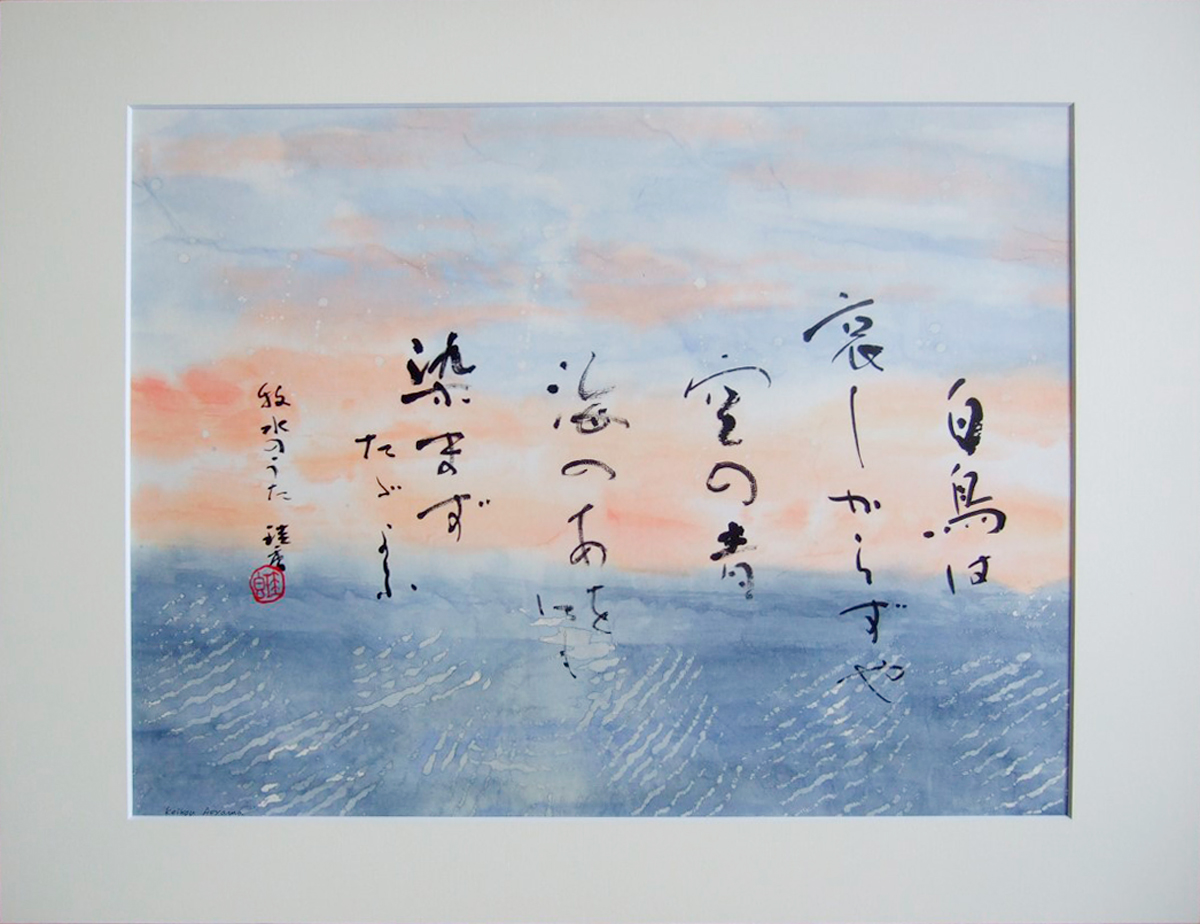 白鳥は
哀しからずや
空の青
海のあを
にも
染まず
たゞよふ
牧水のうた